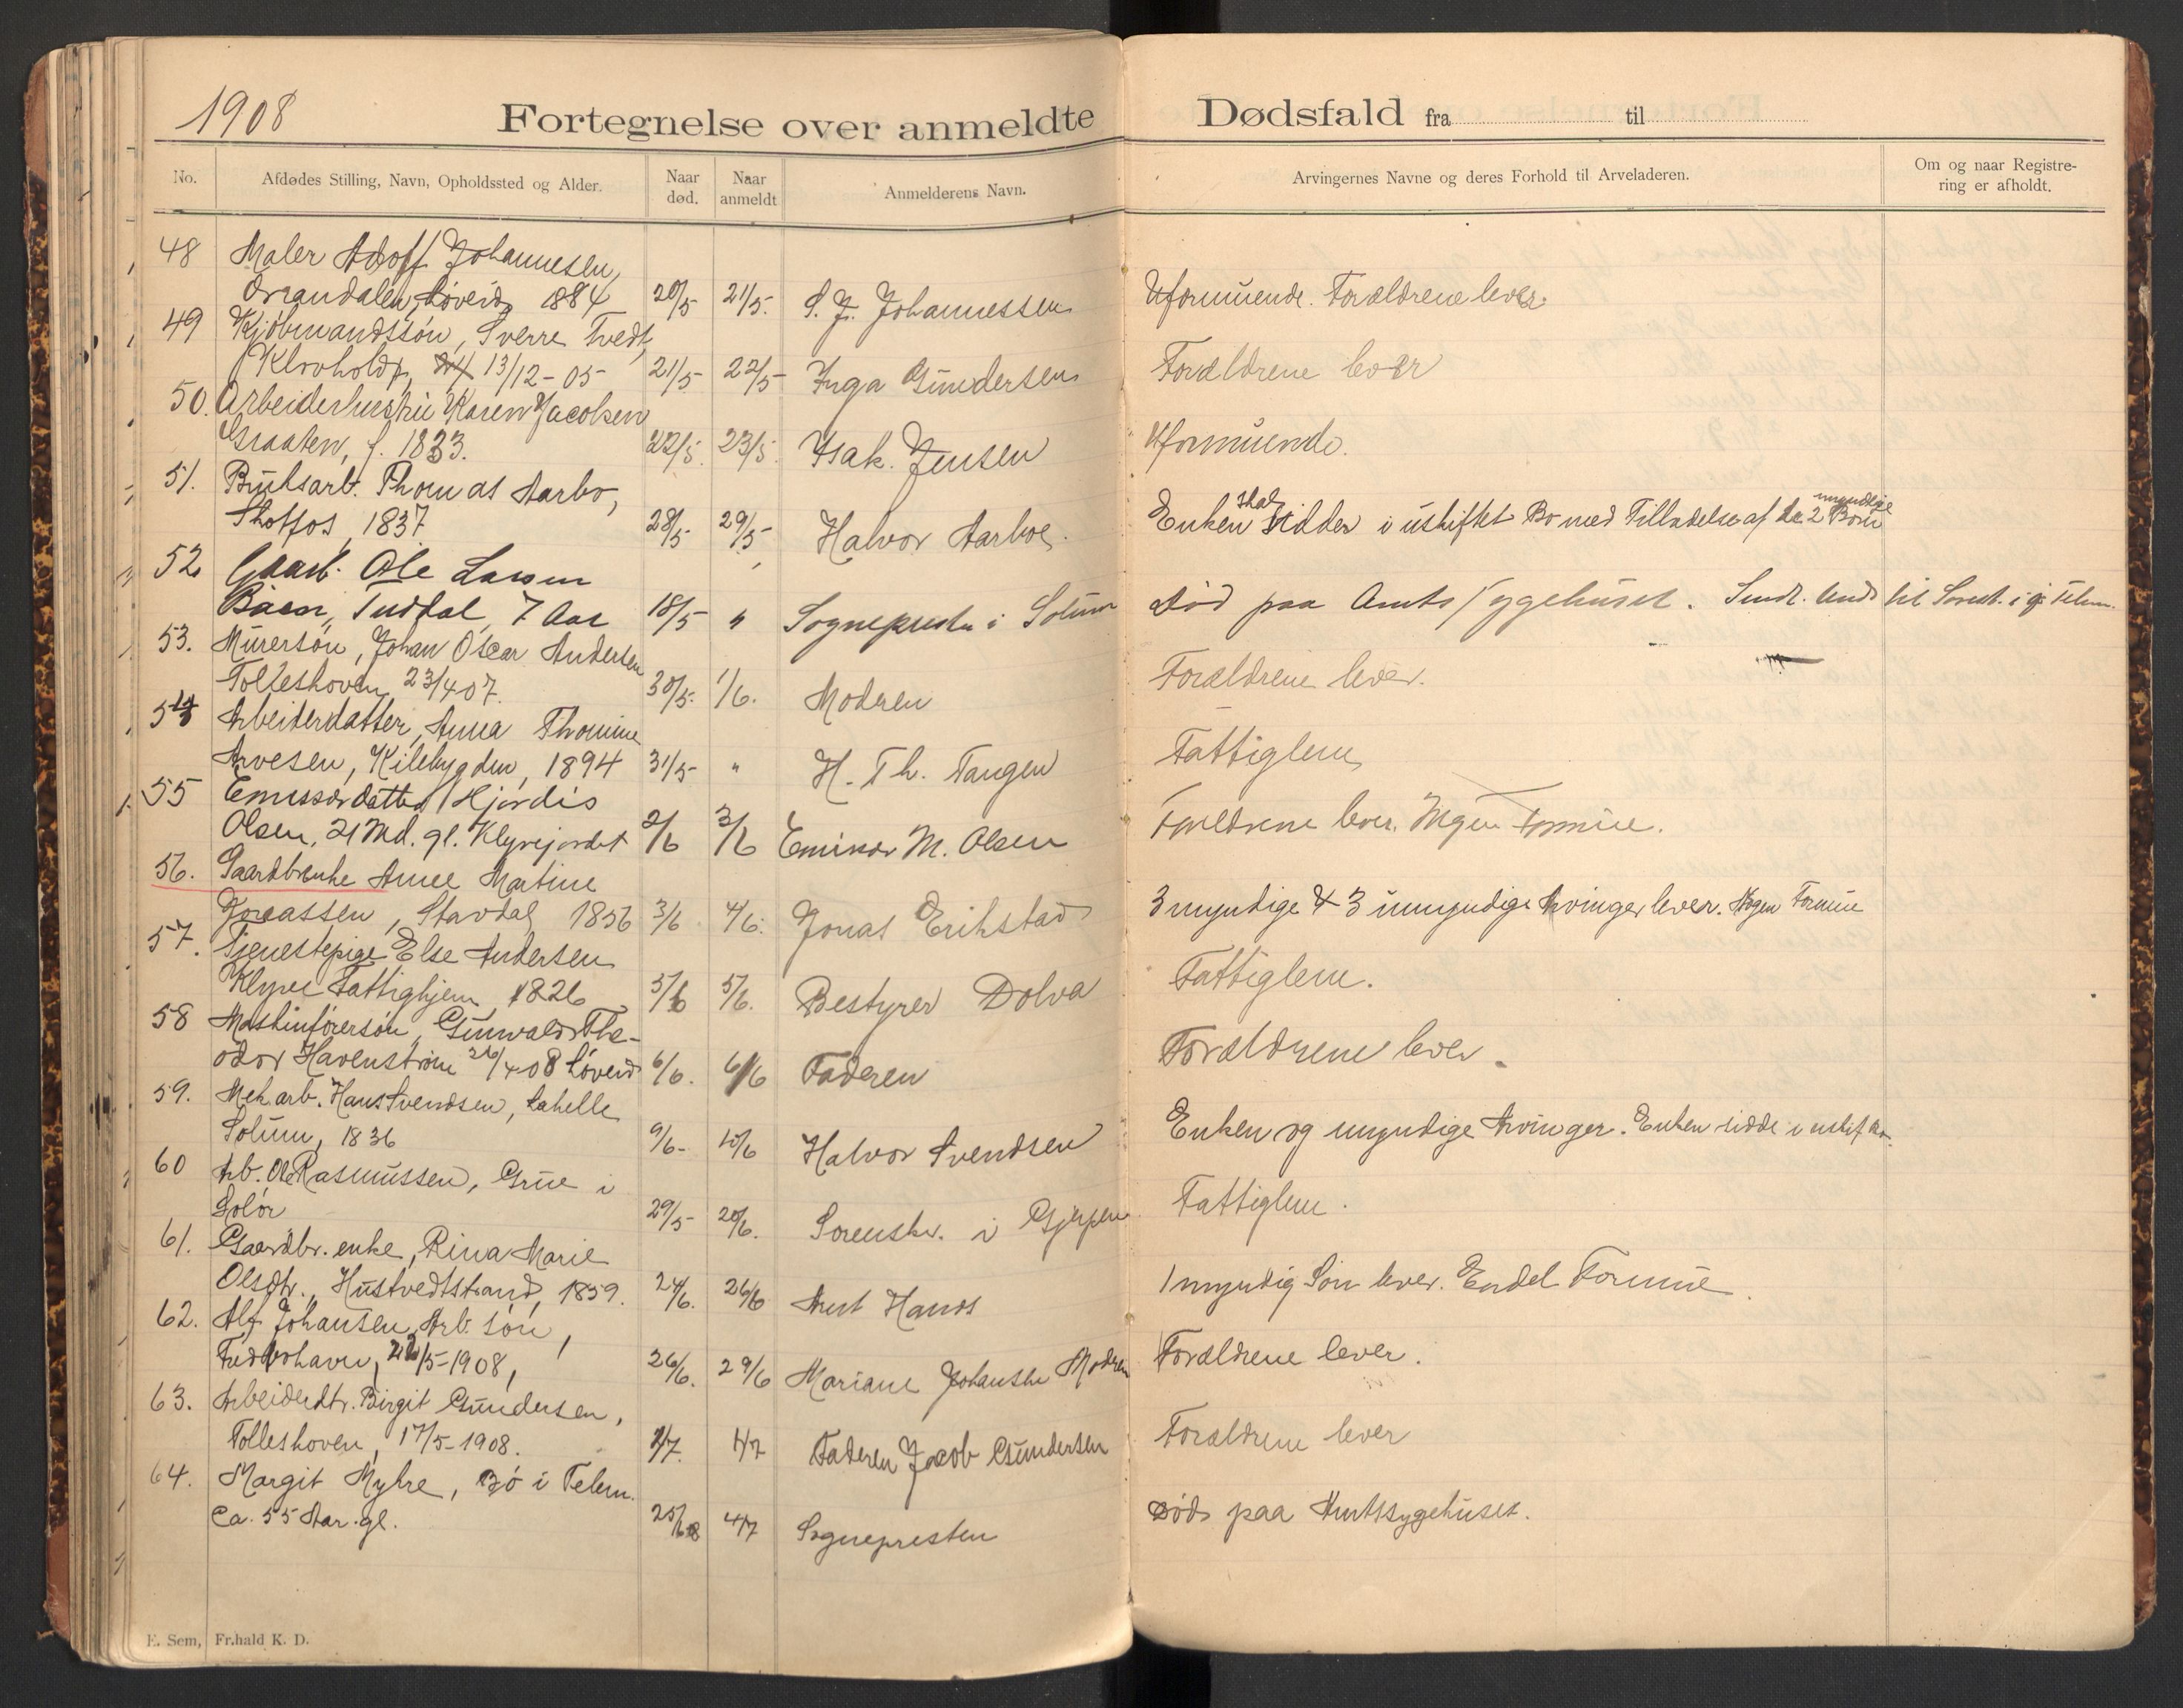 1908
Fortegnelse over anmeldte Dødsfald fra til
No. Afdødes Stilling, Navn, Opholdssted og Alder. Naar død. Naar anmeldt Anmelderens Navn. Arvingernes Navne og deres Forhold til Arveladeren. Om og naar Registrering er afholdt.
48 Maler Adolf Johannesen,
Løveid, 1884 20/5 21/5. S. J. Johannessen Uformuende. Forældrene lever.
49 Kjøbmandssøn, Sverre Tvedt,
Klovholdt, 13/12-05 21/5 22/5 Inga Gundersen Forældrene lever
50. Arbeiderhustru Karen Jacobsen
Graaten, f. 1833. 22/5. 23/5. Isak Jensen Uformuende.
51. Bruksarb. Thomas Aarbo,
Skotfos, 1837 28/5 29/5 Halvor Aarboe. Enken skal sidder i uskiftet Bo med Tilladelse af de 2 myndige Børn
52 Gaarb. Ole Larsen
Bøen, Tuddal, 7 Aar 18/5 " Sognepresten i Solum Død paa Amts sygehuset. Sendt til Sorenskr. i ø. Telem.
53. Murersøn, Johan Oscar Andersen
Tolleshoven 23/4 07. 30/5. 1/6. Moderen Forældrene lever.
54 Arbeiderdatter, Anna Thomine
Arvesen, Kilebygden, 1894 31/5 " H. Th. Tangen Fattiglem
55 Emissærdatter Hjørdis
Olsen, 21 Md. gl. Klyvejordet 2/6 3/6 Emissær M. Olsen Forældrene lever. Ingen Formue.
56. Gaardbrenke Anne Martine
Jonassen, Stavdal, 1856 3/6 4/6. Jonas Erikstad 3 myndige & 3 umyndige Arvinger lever. Ingen Formue
57. Tjenestepige Else Andersen
Klyve Fattighjem, 1826 3/6 5/6. Bestyrer Dolva Fattiglem.
58 Maskinførersøn, Gunwald The-
odor Havenstrøm 26/4 08 Løveid 6/6. 6/6 Faderen Forældrene lever.
59. Mek. arb. Hans Svendsen, Lahelle
Solum, 1836 9/6- 10/6 Halvor Svendsen Enken og myndige Arvinger. Enken sidde i uskif Bo.
60 Arb. Ole Rasmussen, Grue i
Solør 29/5 20/6. Sorenskr. i Gjerpen Fattiglem.
61. Gaardbr. enke, Rina Marie
Olsdtr., Hustvedtstrand, 1859. 24/6. 26/6 Hans 1 myndig Søn lever. Endel Formue.
62. Alf Johansen, Arb. søn,
22/5-1908, 26/6. 29/6 Mariane Johansen Moderen Forældrene lever.
63. Arbeiderdtr. Birgit Gundersen,
Tolleshoven, 17/5-1908. 2/7. 4/7 Faderen Jacob Gundersen Forældrene lever
64. Margit Myhre, Bø i Telem.
Ca. 55 Aar gl. 25/6 08 4/7 Sognepresten Død paa Amtssygehuset.
E. Sem, Fr.hald K. D.